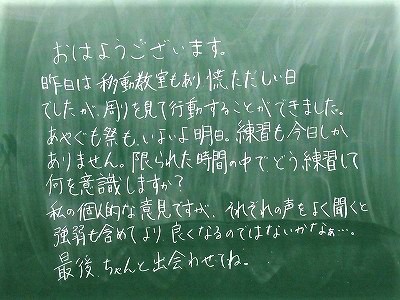 おはようございます。
昨日は移動教室もあり慌ただしい日
でしたが、周りを見て行動することができました。
あやぐも祭も、いよいよ明日。練習も今日しか
ありません。限られた時間の中でどう練習して
何を意識しますか?
私の個人的な意見ですが、それぞれの声をよく聞くと
強弱も含めてより良くなるのではないかなぁ…。
最後、ちゃんと出会わせてね。